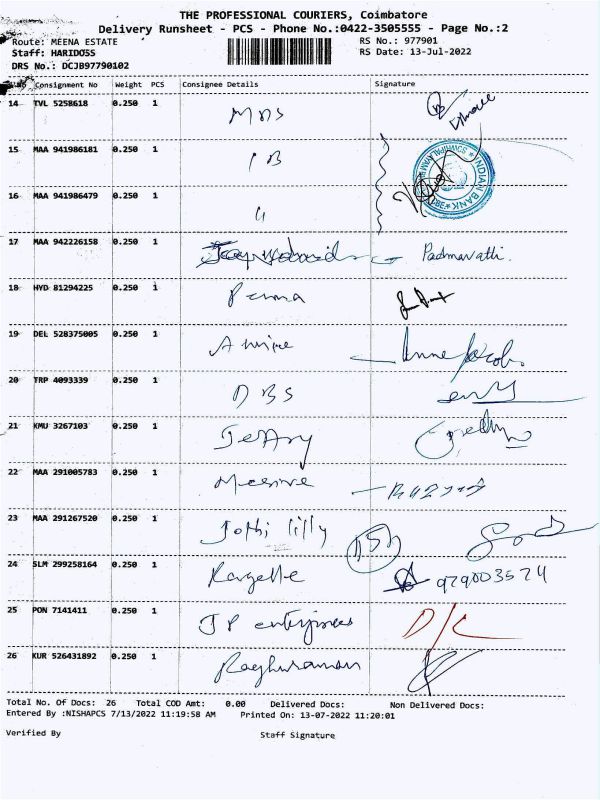 THE PROFESSIONAL COURIERS, Coimbatore
Delivery Runsheet - PCS - Phone No.:0422-3505555 - Page No.:2
Route: MEENA ESTATE RS No.: 977901
Staff: HARIDOSS RS Date: 13-Jul-2022
DRS No.: DCJB97790102
Consignment No Weight PCS Consignee Details Signature
14 TVL 5258618 0.250 1 MDS
15 MAA 941986181 0.250 1 IB
INDIAN BANK
16 MAA 941986479 0.250 1 "
17 MAA 942226158 0.250 1 Padmavathi.
18 HYD 81294225 0.250 1
19 DEL 528375005 0.250 1 Anne Jacob
20 TRP 4093339 0.250 1 DBS
21 KMU 3267103 0.250 1 Jeffry
22 MAA 291005783 0.250 1
23 MAA 291267520 0.250 1 Jothi lilly
24 SLM 299258164 0.250 1
25 PON 7141411 0.250 1 JP enterprises D/C
26 KUR 526431892 0.250 1 Raghuraman
Total No. Of Docs: 26 Total COD Amt: 0.00 Delivered Docs: Non Delivered Docs:
Entered By :NISHAPCS 7/13/2022 11:19:58 AM Printed On: 13-07-2022 11:20:01
Verified By Staff Signature